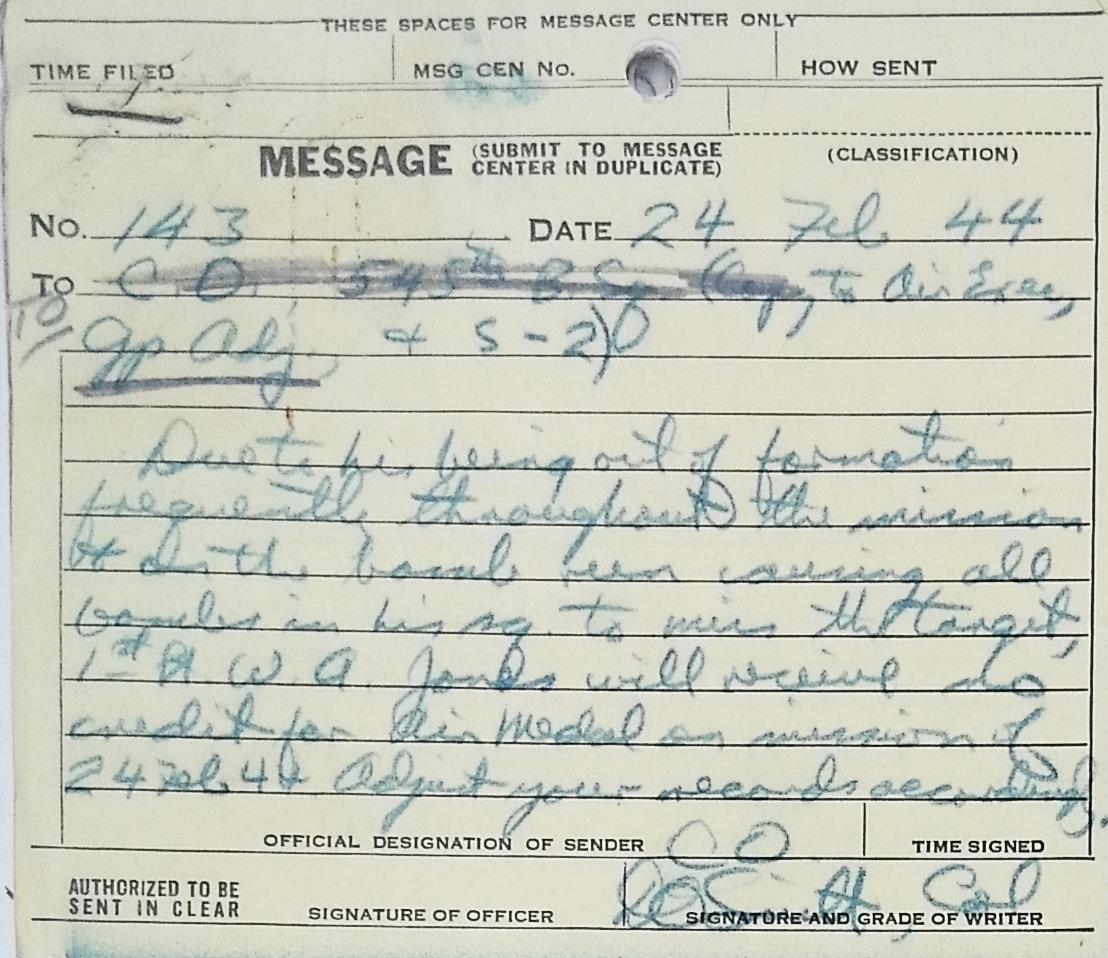 THESE SPACES FOR MESSAGE CENTER ONLY
TIME FILED MSG CEN No. HOW SENT
MESSAGE (SUBMIT TO MESSAGE CENTER IN DUPLICATE) (CLASSIFICATION)
No. 143 DATE 24 Feb 44
TO C.O. 545th B. Sq (Copy to Air Exec,
TO Gp Adj, + S-2)
Due to his being out of formation
frequently throughout the mission
+ on the bomb run causing all
bombs in his sq. to miss the target,
1st Lt. W. A. Jones will receive no
credit for Air Medal on mission of
24 Feb 44 Adjust your records accordingly.
OFFICIAL DESIGNATION OF SENDER CO TIME SIGNED
AUTHORIZED TO BE SENT IN CLEAR
SIGNATURE OF OFFICER SIGNATURE AND GRADE OF WRITER Col